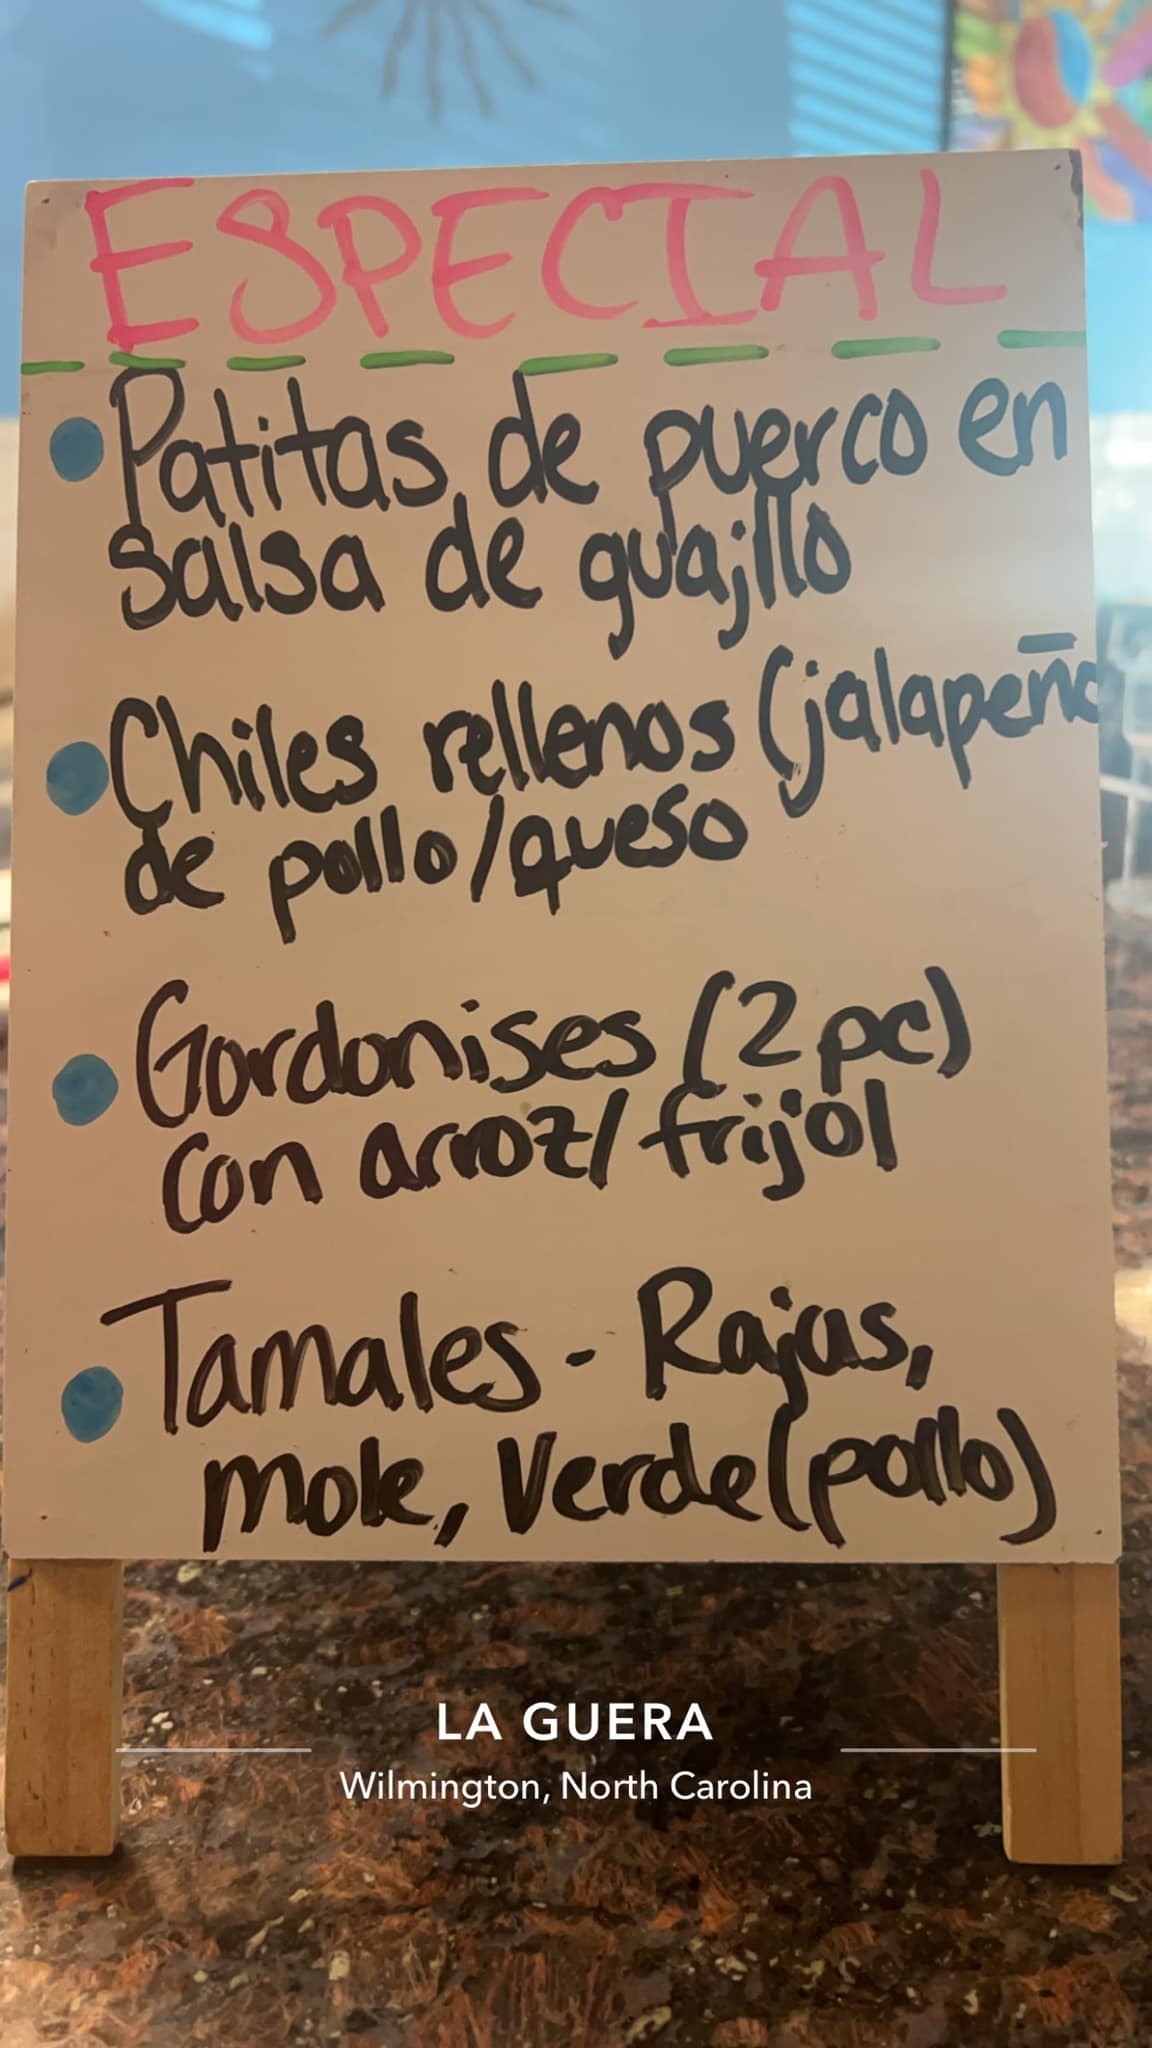 ESPECIAL
Patitas de puerco en
salsa de guajillo
Chiles rellenos (jalapeño
de pollo/queso
Gordonises (2 pc)
con arroz/ frijol
Tamales - Rajas,
mole, Verde (pollo)
LA GUERA
Wilmington, North Carolina